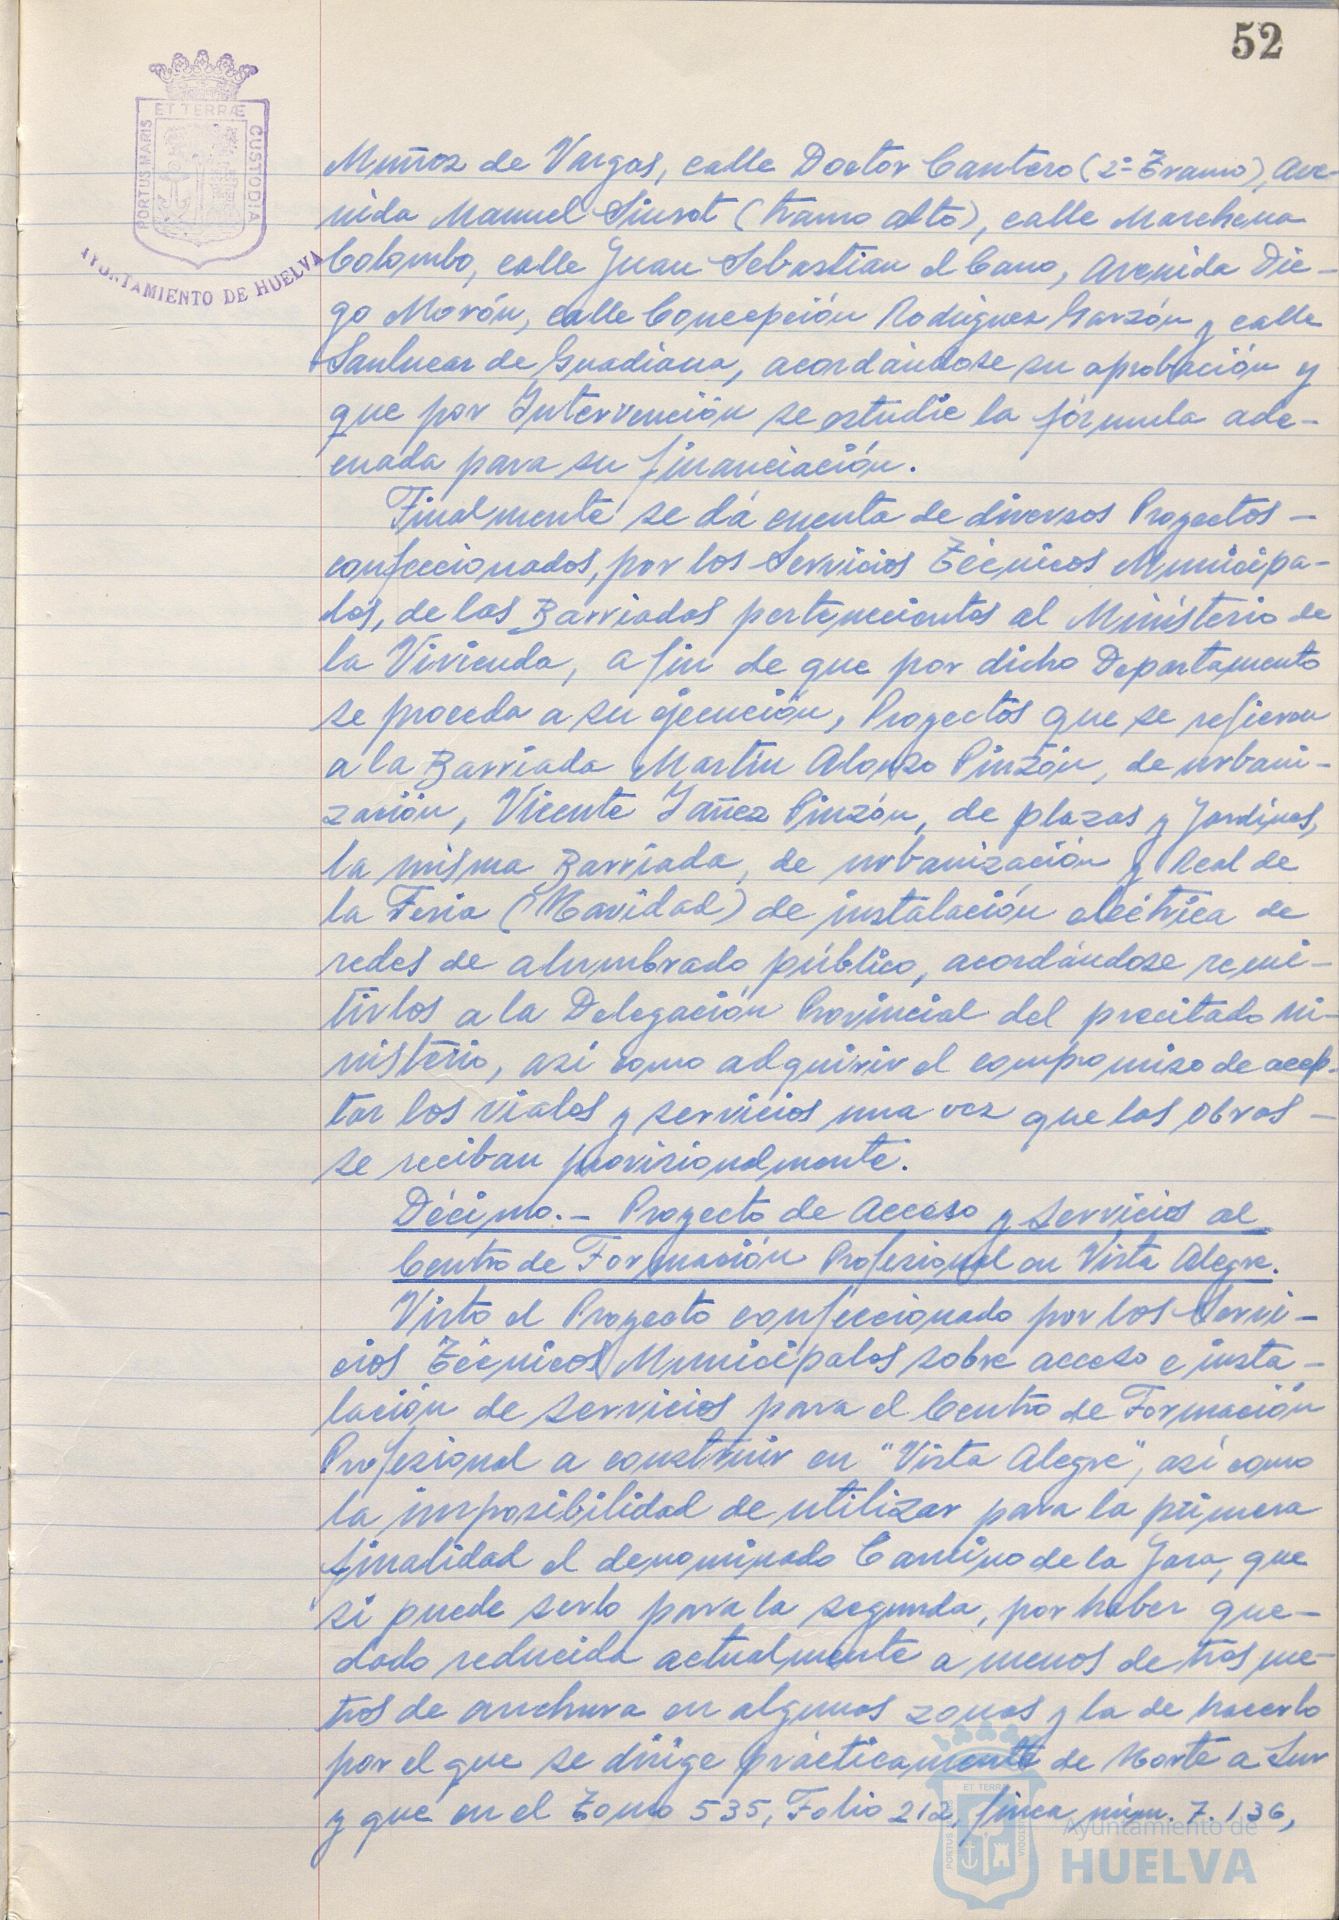 52
ET TERRÆ
PORTUS MARIS
CUSTODIA
AYUNTAMIENTO DE HUELVA
Muñoz de Vargas, calle Doctor Cantero (2º Tramo), Ave-
nida Manuel Siurot (tramo alto), calle Marchena
Colombo, calle Juan Sebastian el Cano, Avenida Die-
go Morón, calle Concepción Rodriguez Garzón y calle
Sanlucar de Guadiana, acordándose su aprobación y
que por Intervención se estudie la fórmula ade-
cuada para su financiación.
Finalmente se dá cuenta de diversos Proyectos -
confeccionados, por los Servicios Técnicos Municipa-
les, de las Barriadas pertenecientes al Ministerio de
la Vivienda, a fin de que por dicho Departamento
se proceda a su ejecución, Proyectos que se refieren
a la Barriada Martín Alonso Pinzón, de urbani-
zación, Vicente Yañez Pinzón, de plazas y jardines,
la misma Barriada, de urbanización y Real de
la Feria (Navidad) de instalación eléctrica de
redes de alumbrado público, acordándose remi-
tirlos a la Delegación Provincial del precitado Mi-
nisterio, asi como adquirir el compromiso de acep-
tar los viales y servicios una vez que las obras -
se reciban provisionalmente.
Décimo.- Proyecto de Acceso y Servicios al
Centro de Formación Profesional en Vista Alegre.
Visto el Proyecto confeccionado por los Servi-
cios Técnicos Municipales sobre acceso e insta-
lación de servicios para el Centro de Formación
Profesional a construir en "Vista Alegre", asi como
la imposibilidad de utilizar para la primera
finalidad el denominado Camino de la Jara, que
si puede serlo para la segunda, por haber que-
dado reducida actualmente a menos de tres me-
tros de anchura en algunas zonas y la de hacerlo
por el que se dirige prácticamente de Norte a Sur
y que en el Tomo 535, Folio 212, finca núm. 7.136,
ET TERRÆ
PORTUS MARIS
CUSTODIA
Ayuntamiento de
HUELVA